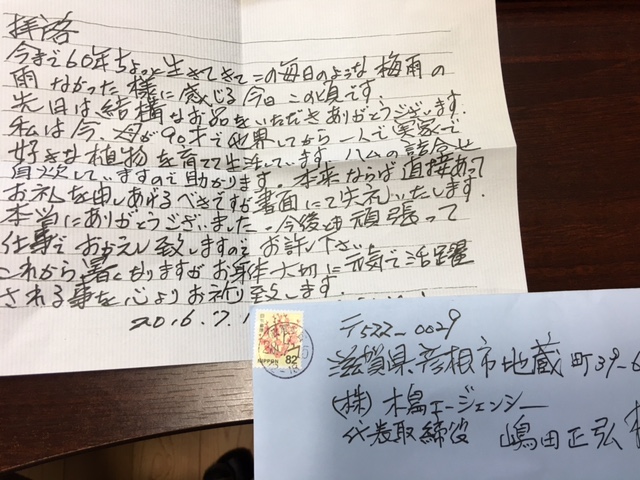 拝啓
今まで60年ちょっと生きてきてこの毎日のような梅雨の
雨なかった様に感じる今日この頃です.
先日は結構なお品をいただきありがとうございます.
私は今、母が90才で他界してから一人で実家で
好きな植物を育てて生活しています. ハムの詰合せ
していますので助かります. 本来ならば直接あって
お礼を申しあげるべきですが書面にて失礼いたします.
本当にありがとうございました. 今後も頑張って
仕事でおかえし致しますのでお許し下さい
これから暑くなりますがお身体大切に元気で活躍
される事を心よりお祈り致します.
2016.7.1
NIPPON 82
〒522-0029
滋賀県彦根市地蔵町39-6
(株)木島エージェンシー
代表取締役 嶋田正弘